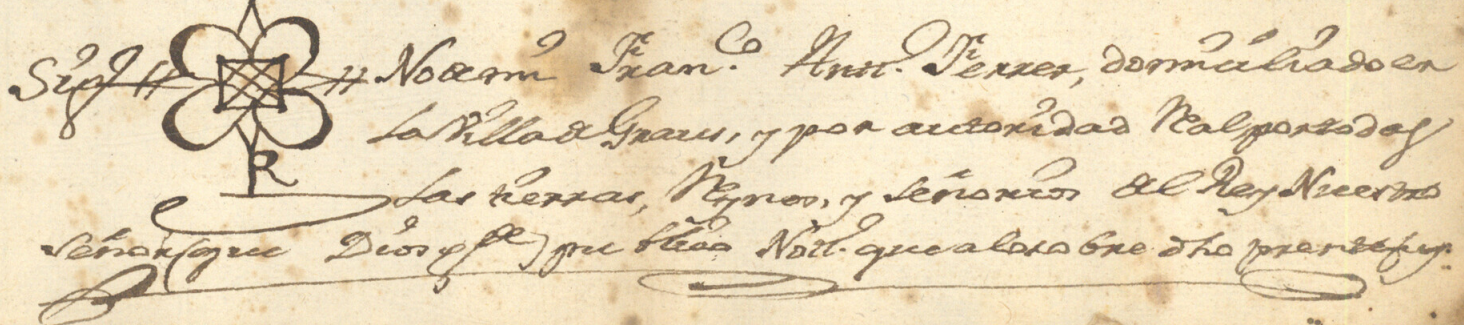 Sig# #No de mi Fran.co Ant.o Ferrer, domiciliado en
la Villa de Graus, y por autoridad Real por todas
R
las tierras, Reynos, y Señorios del Rey Nuestro
Señor (que Dios gde) publico Nott.o que a lo sobre dho presente fuy.